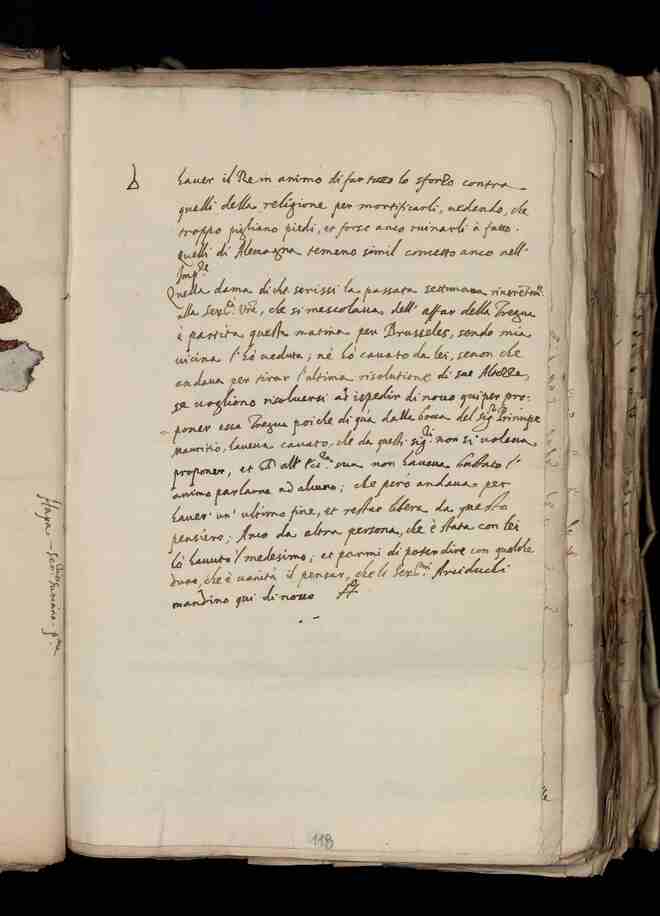 hauer il Re in animo di far tutto lo sforzo contra
quelli della religione per mortificarli, uedendo, che
troppo pigliano piedi, et forse anco ruinarli à fatto.
quelli di Alemagna temono simil concetto anco nell'
Imp.re
Quella dama di che scrissi la passata settimana
alla Ser.tà V.ra, che si mescolaua dell'affar della Tregua
è partita questa matina per Brusseles, sendo mia
uicina l'hò ueduta; nè hò cauato da lei, senon che
andaua per tirar l'ultima risolutione di sue Altezze,
se uogliono risoluersi ad ispedir di nouo qui per pro-
poner essa Tregua poiche di quà dalla bocca del sig.r Principe
Mauritio, haueua cauato, che da questi sig.ri non si uoleua
proponer, et all' sua non haueua bastato l'
animo parlarne ad alcuno; che però andaua per
hauer un' ultimo fine, et restar libera da questo
pensiero; Anco da altra persona, che è stata con lei
hò hauuto l' medesimo; et parmi di poter dire con qualche
che è uanità il pensar, che li Ser.mi Arciduchi
mandino qui di nouo
118